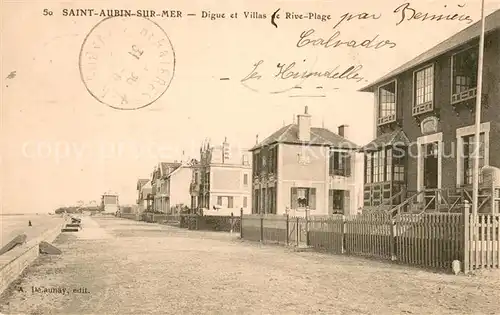 50 SAINT-AUBIN-SUR-MER - Digue et Villas de Rive-Plage
par Bernière
Calvados
Les Hirondelles
A. Delaunay, edit.